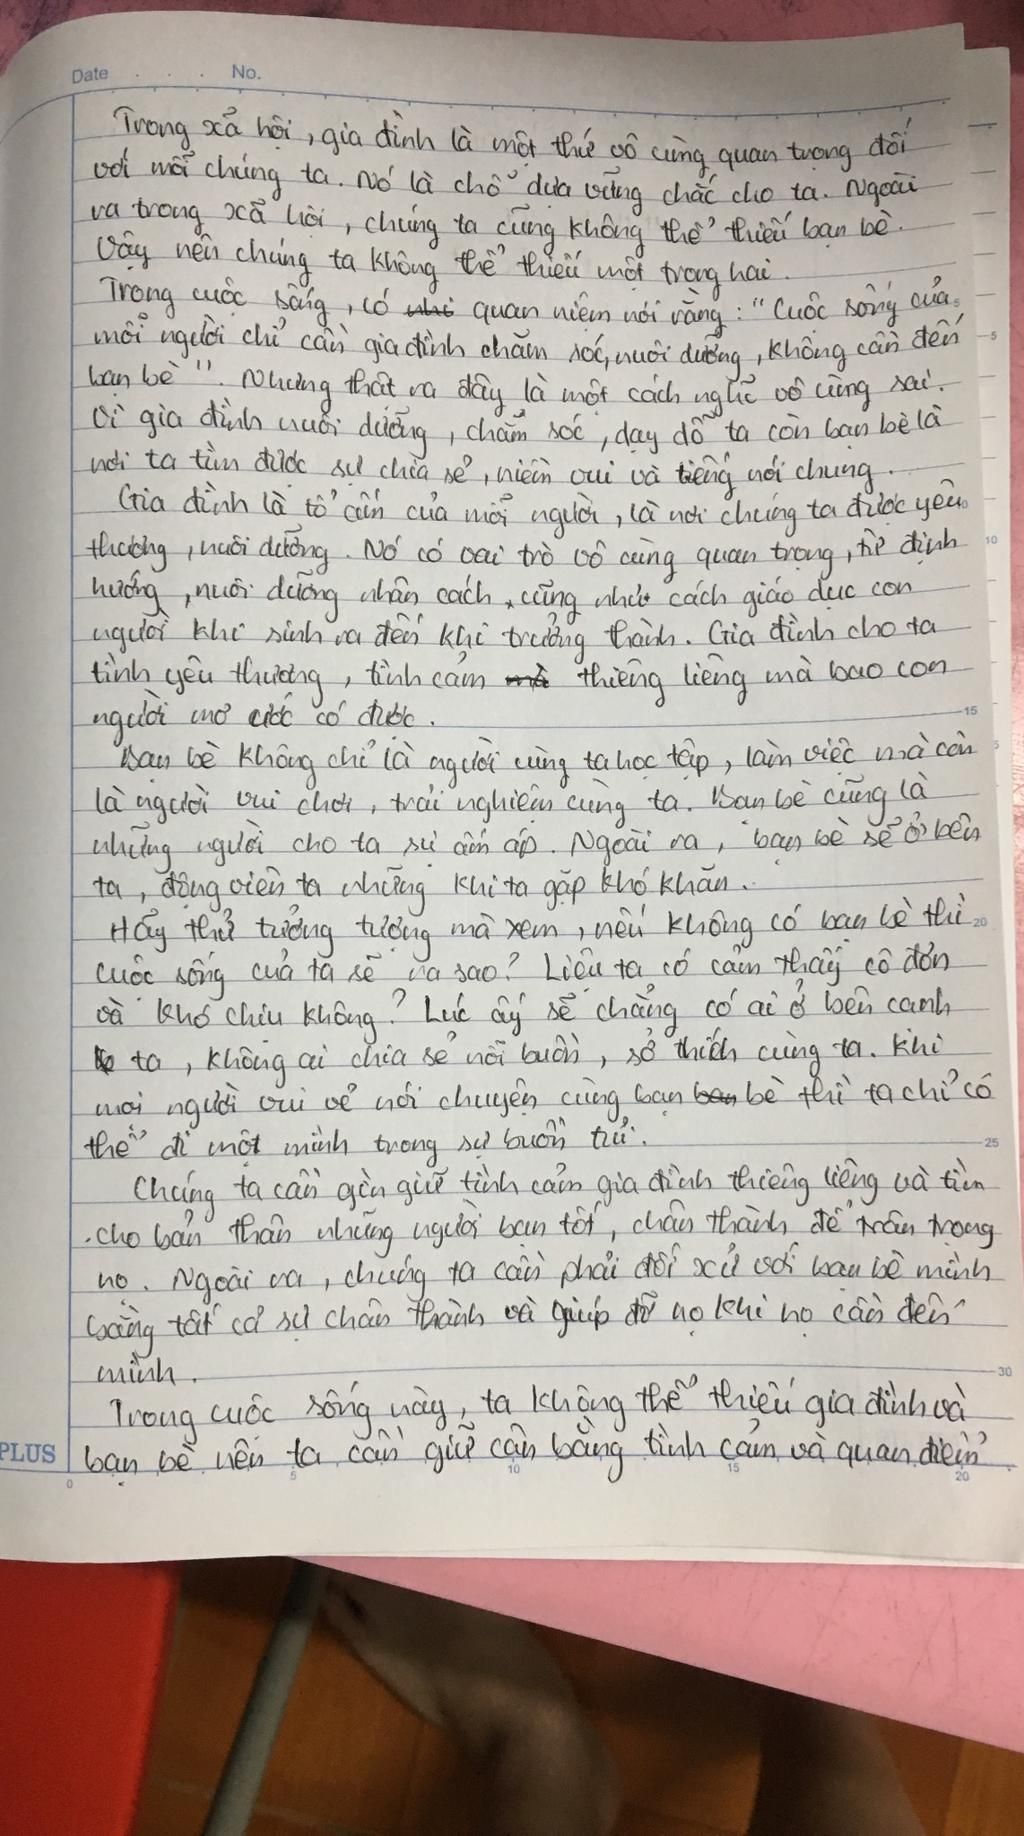 Date . . . . No.
Trong xả hội, gia đình là một thứ vô cùng quan trọng đối
với mỗi chúng ta. Nó là chỗ dựa vững chắc cho ta. Ngoài
ra trong xã hội, chúng ta cũng không thể thiếu bạn bè.
Vậy nên chúng ta không thể thiếu một trong hai.
Trong cuộc sống, có quan niệm nói rằng: "Cuộc sống của
mỗi người chỉ cần gia đình chăm sóc, nuôi dưỡng, không cần đến
5
bạn bè". Nhưng thật ra đây là một cách nghĩ vô cùng sai.
Vì gia đình nuôi dưỡng, chăm sóc, dạy dỗ ta còn bạn bè là
nơi ta tìm được sự chia sẻ, niềm vui và tiếng nói chung.
Gia đình là tổ ấm của mỗi người, là nơi chúng ta được yêu
thương, nuôi dưỡng. Nó có vai trò vô cùng quan trọng, từ định
10
hướng, nuôi dưỡng nhân cách, cũng như cách giáo dục con
người khi sinh ra đến khi trưởng thành. Gia đình cho ta
tình yêu thương, tình cảm thiêng liêng mà bao con
người mơ ước có được.
15
Bạn bè không chỉ là người cùng ta học tập, làm việc mà còn
là người vui chơi, trải nghiệm cùng ta. Bạn bè cũng là
những người cho ta sự ấm áp. Ngoài ra, bạn bè sẽ ở bên
ta, động viên ta những khi ta gặp khó khăn.
Hãy thử tưởng tượng mà xem, nếu không có bạn bè thì
20
cuộc sống của ta sẽ ra sao? Liệu ta có cảm thấy cô đơn
và khó chịu không? Lúc ấy sẽ chẳng có ai ở bên cạnh
ta, không ai chia sẻ nỗi buồn, sở thích cùng ta. Khi
mọi người vui vẻ nói chuyện cùng bạn bè thì ta chỉ có
thể đi một mình trong sự buồn tủi.
25
Chúng ta cần gìn giữ tình cảm gia đình thiêng liêng và tìm
cho bản thân những người bạn tốt, chân thành để trân trọng
họ. Ngoài ra, chúng ta cần phải đối xử với bạn bè mình
bằng tất cả sự chân thành và giúp đỡ họ khi họ cần đến
mình.
30
Trong cuộc sống này, ta không thể thiếu gia đình và
bạn bè nên ta cần giữ cân bằng tình cảm và quan điểm
PLUS
0 5 10 15 20